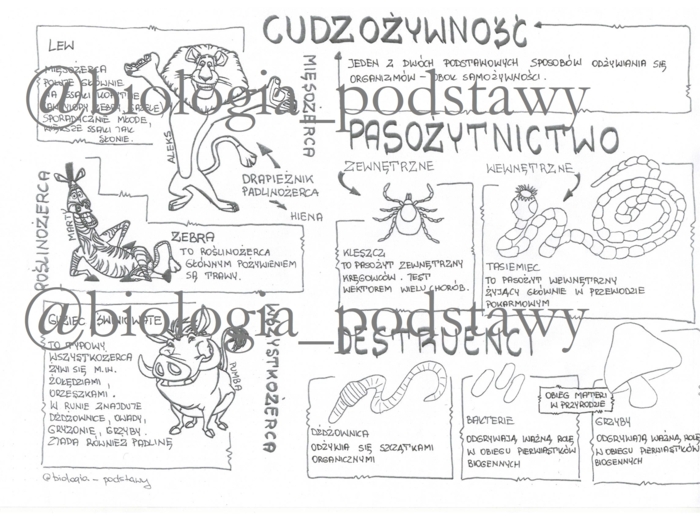 CUDZOŻYWNOŚĆ
JEDEN Z DWÓCH PODSTAWOWYCH SPOSOBÓW ODŻYWIANIA SIĘ
ORGANIZMÓW – OBOK SAMOŻYWNOŚCI.
LEW
MIĘSOŻERCA
POLUJE GŁÓWNIE
NA SSAKI KOPYTNE
SPORADYCZNIE MŁODE,
WIĘKSZE SSAKI JAK
SŁONIE.
ALEKS
MIĘSOŻERCA
@biologia_podstawy
DRAPIEŻNIK
PADLINOŻERCA
HIENA
ROŚLINOŻERCA
MARTY
ZEBRA
TO ROŚLINOŻERCA
GŁÓWNYM POŻYWIENIEM
SĄ TRAWY.
PASOŻYTNICTWO
ZEWNĘTRZNE
KLESZCZ
TO PASOŻYT ZEWNĘTRZNY
KRĘGOWCÓW. JEST
WEKTOREM WIELU CHORÓB.
WEWNĘTRZNE
TASIEMIEC
TO PASOŻYT WEWNĘTRZNY
ŻYJĄCY GŁÓWNIE W PRZEWODZIE
POKARMOWYM
@biologia_podstawy
GUZIEC
TO TYPOWY
WSZYSTKOŻERCA
ŻYWI SIĘ M.IN.
ŻOŁĘDZIAMI,
ORZESZKAMI.
W RUNIE ZNAJDUJE
DŻDŻOWNICE, OWADY,
GRYZONIE, GRZYBY.
ZJADA RÓWNIEŻ PADLINĘ
PUMBA
WSZYSTKOŻERCA
DESTRUENCI
DŻDŻOWNICA
ODŻYWIA SIĘ SZCZĄTKAMI
ORGANICZNYMI
BAKTERIE
ODGRYWAJĄ WAŻNĄ ROLĘ
W OBIEGU PIERWIASTKÓW
BIOGENNYCH
OBIEG MATERII
W PRZYRODZIE
GRZYBY
ODGRYWAJĄ WAŻNĄ ROLĘ
W OBIEGU PIERWIASTKÓW
BIOGENNYCH
@biologia_podstawy